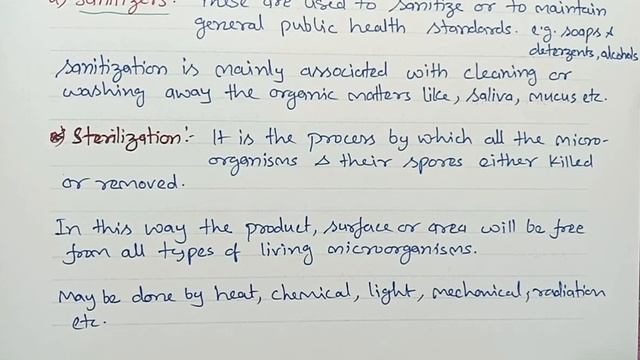 d) Sanitizers: These are used to sanitize or to maintain
general public health standards. e.g. soaps &
detergents, alcohols
Sanitization is mainly associated with cleaning or
washing away the organic matters like, saliva, mucus etc.
Sterilization:- It is the process by which all the micro-
organisms & their spores either killed
or removed.
In this way the product, surface or area will be free
from all types of living microorganisms.
May be done by heat, chemical, light, mechanical, radiation
etc.